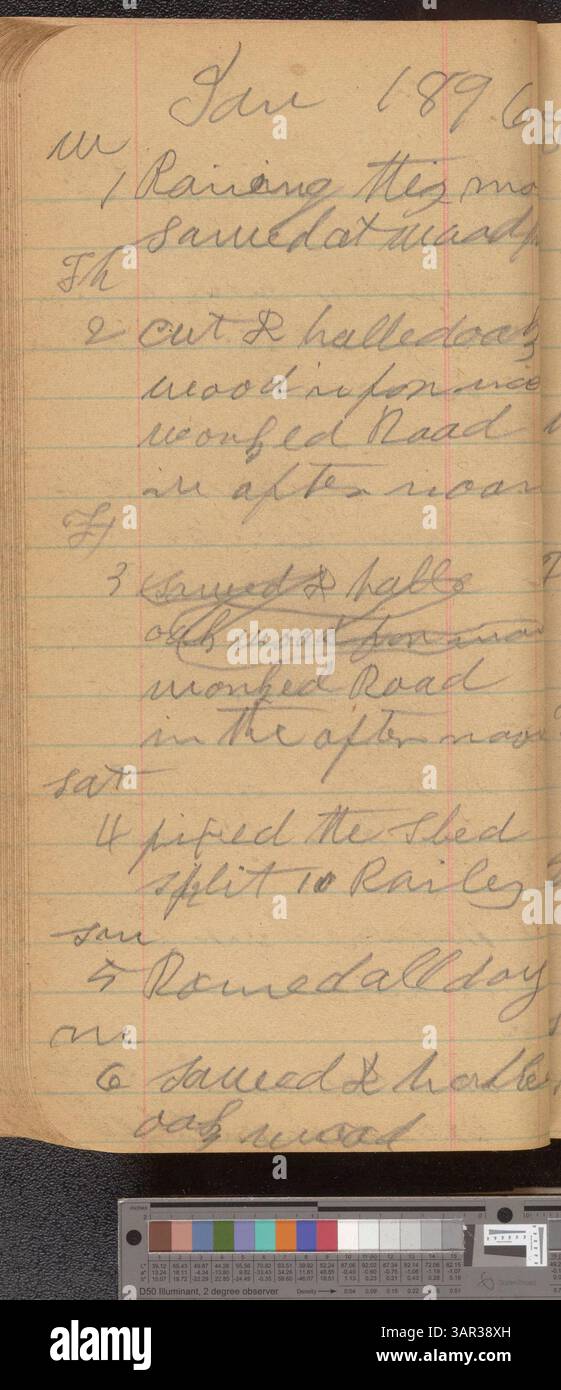 Jan 1896
W
1 Raining this mo
sawed at wood
Th
2 cut & halled oak
wood upon
worked Road
in after noon
Fr
3 sawed & halle
oak wood
worked Road
in the after noon
sat
4 fixed the shed
split 10 Railes
sun
5 Rained all day
m
6 sawed &
oak wood
D50 Illuminant, 2 degree observer
Density
a
alamy
Image ID: 3AR38XH
www.alamy.com